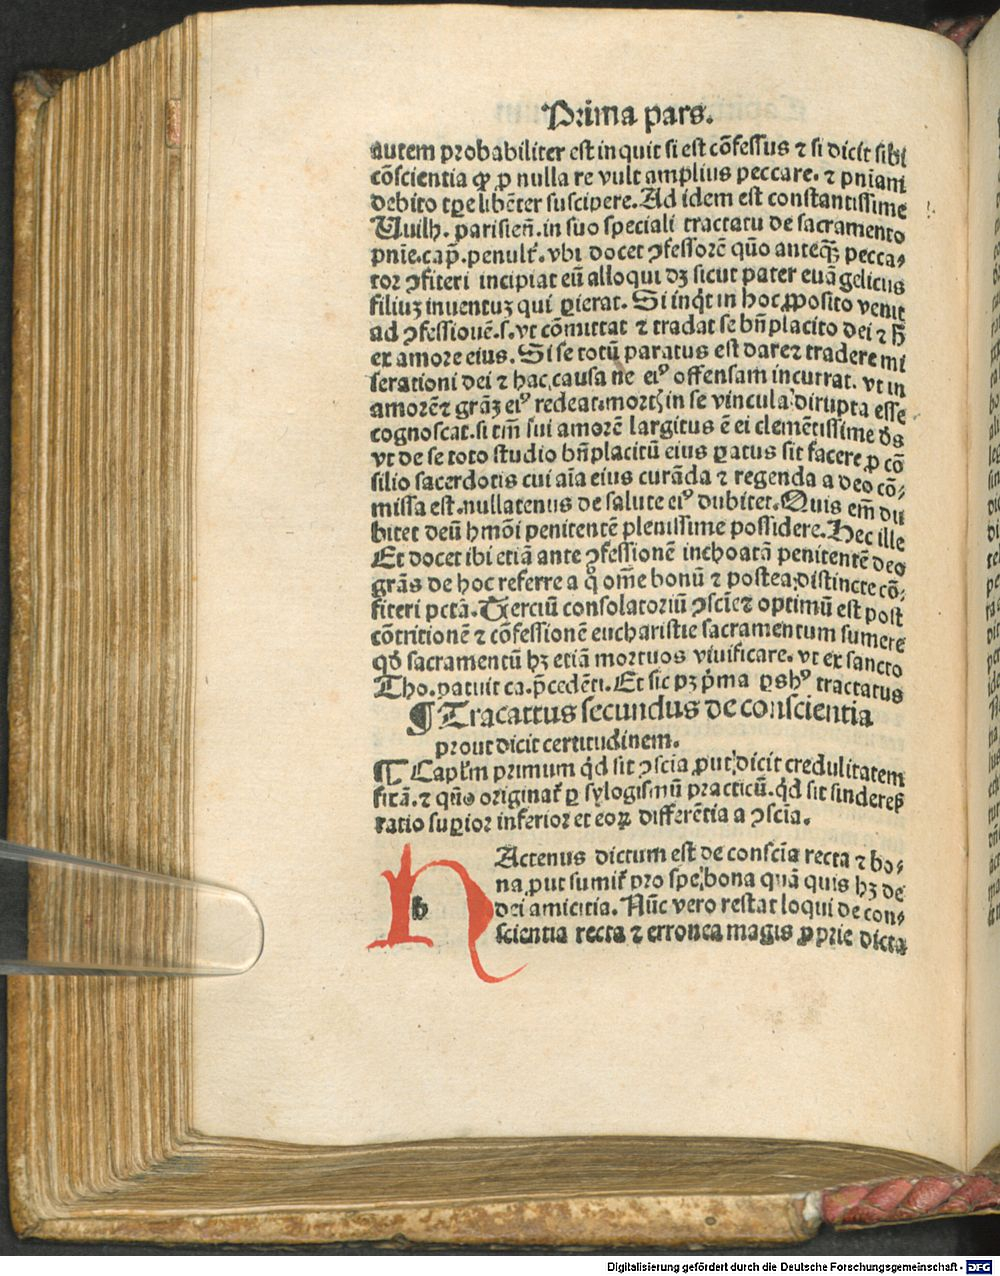 Prima pars.
autem probabiliter est inquit si est cõfessus ⁊ si dicit sibi
cõscientia ꝙ ꝓ nulla re vult amplius peccare. ⁊ pniam
debito tꝑe libẽter suscipere. Ad idem est constantissime
Vuilh. parisieñ. in suo speciali tractatu de sacramento
pnie. cap̃. penult̃. vbi docet ꝯfessorẽ quo anteqꝫ pecca-
tor ꝯfiteri incipiat eũ alloqui dꝫ sicut pater euãgelicus
filiuꝫ inuentuꝫ qui ꝑierat. Si inqͥt in hoc ꝓposito venit
ad ꝯfessionẽ. s. vt cõmittat ⁊ tradat se bñplacito dei ⁊ h̃
ex amore eius. Si se totũ paratus est dare ⁊ tradere mi
serationi dei ⁊ hac causa ne eiꝰ offensam incurrat. vt in
amorẽ ⁊ grãꝫ eiꝰ redeat. mortꝭ in se vincula dirupta esse
cognoscat. si tm̃ sui amorẽ largitus ẽ ei clemẽtissime dñs
vt de se toto studio bñplacitũ eius ꝑatus sit facere ꝓ cõ
silio sacerdotis cui aĩa eius curãda ⁊ regenda a deo cõ-
missa est. nullatenus de salute eiꝰ dubitet. Quis em̃ du
bitet deũ hmõi penitentẽ plenissime possidere. Hec ille
Et docet ibi etiã ante ꝯfessionẽ inchoatã penitentẽ deo
grãs de hoc referre a q̊ om̃e bonũ ⁊ postea distincte cõ-
fiteri pctã. Terciũ consolatoriũ ꝯscĩe ⁊ optimũ est post
cõtritionẽ ⁊ cõfessionẽ eucharistie sacramentum sumere
qd̃ sacramentũ hꝫ etiã mortuos viuificare. vt ex sancto
Tho. patuit ca. p̃cedẽti. Et sic pꝫ pͥma ꝑs hꝰ tractatus
¶ Tracattus secundus de conscientia
prout dicit certitudinem.
¶ Capl̃m primum qͥd sit ꝯscĩa ꝓut dicit credulitatem
firã. ⁊ quõ originat̃ ꝑ sylogismũ practicũ. qͥd sit sinderes̃
ratio suꝑior inferior et eoꝝ differẽtia a ꝯscĩa.
h
HActenus dictum est de consciã recta ⁊ bo-
na ꝓut sumit̃ pro spe bona quã quis hꝫ de
dei amicitia. Nũc vero restat loqui de con-
scientia recta ⁊ erronea magis ꝓprie dicta
Digitalisierung gefördert durch die Deutsche Forschungsgemeinschaft - DFG